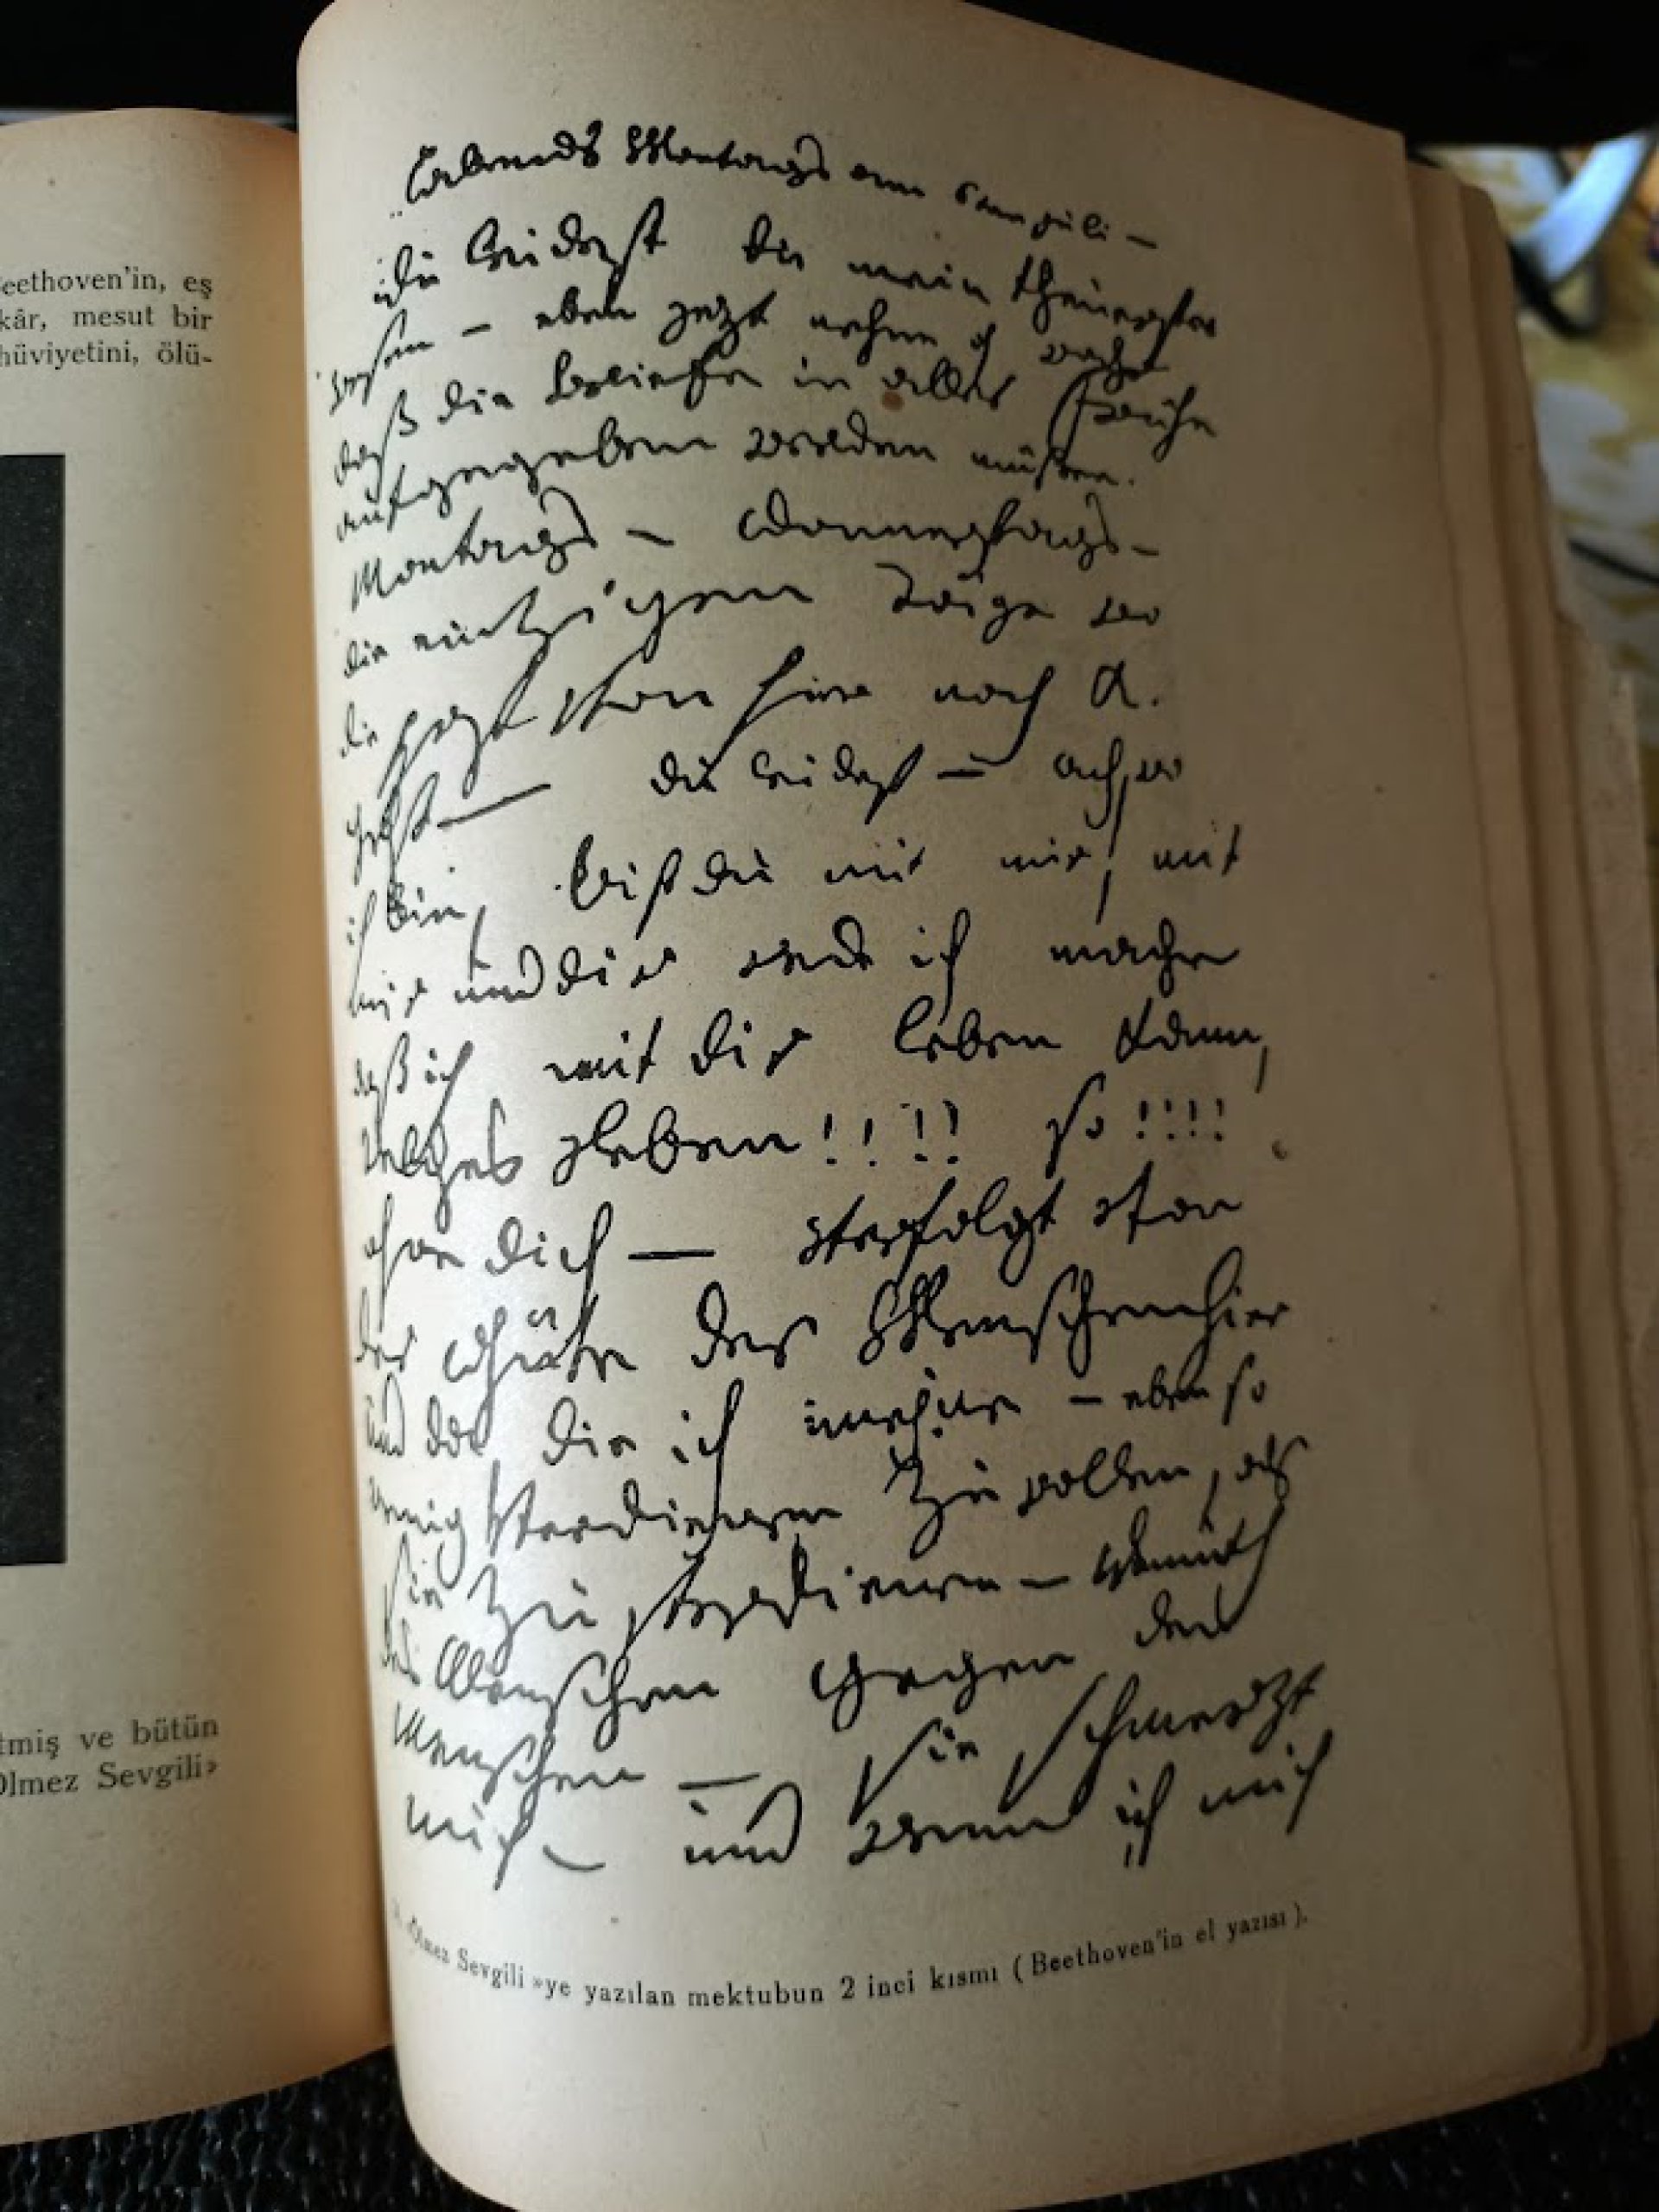 eethoven'in, eş
kâr, mesut bir
hüviyetini, ölü-
tmiş ve bütün
Ölmez Sevgili»
Abends Montags am 6ten juli —
du leidest du mein theuerstes
wesen — eben jezt nehme ich wahr
daß die Briefe in aller Frühe
aufgegeben werden müssen.
Montags — Donnerstags —
die einzigen Täge wo
die Post von hier nach K.
geht — du leidest — ach, wo
ich bin, bist du mit mir, mit
mir und dir rede ich mache
daß ich mit dir leben kann,
welches Leben!!!! so!!!!
ohne dich — Verfolgt von
der Güte der Menschen hier
und da, die ich meyne — eben so
wenig Verdienen zu wollen, als
sie zu verdienen — Demuth
des Menschen gegen den
Menschen — sie schmerzt
mich — und wenn ich mich
«Ölmez Sevgili»ye yazılan mektubun 2 inci kısmı (Beethoven'in el yazısı).